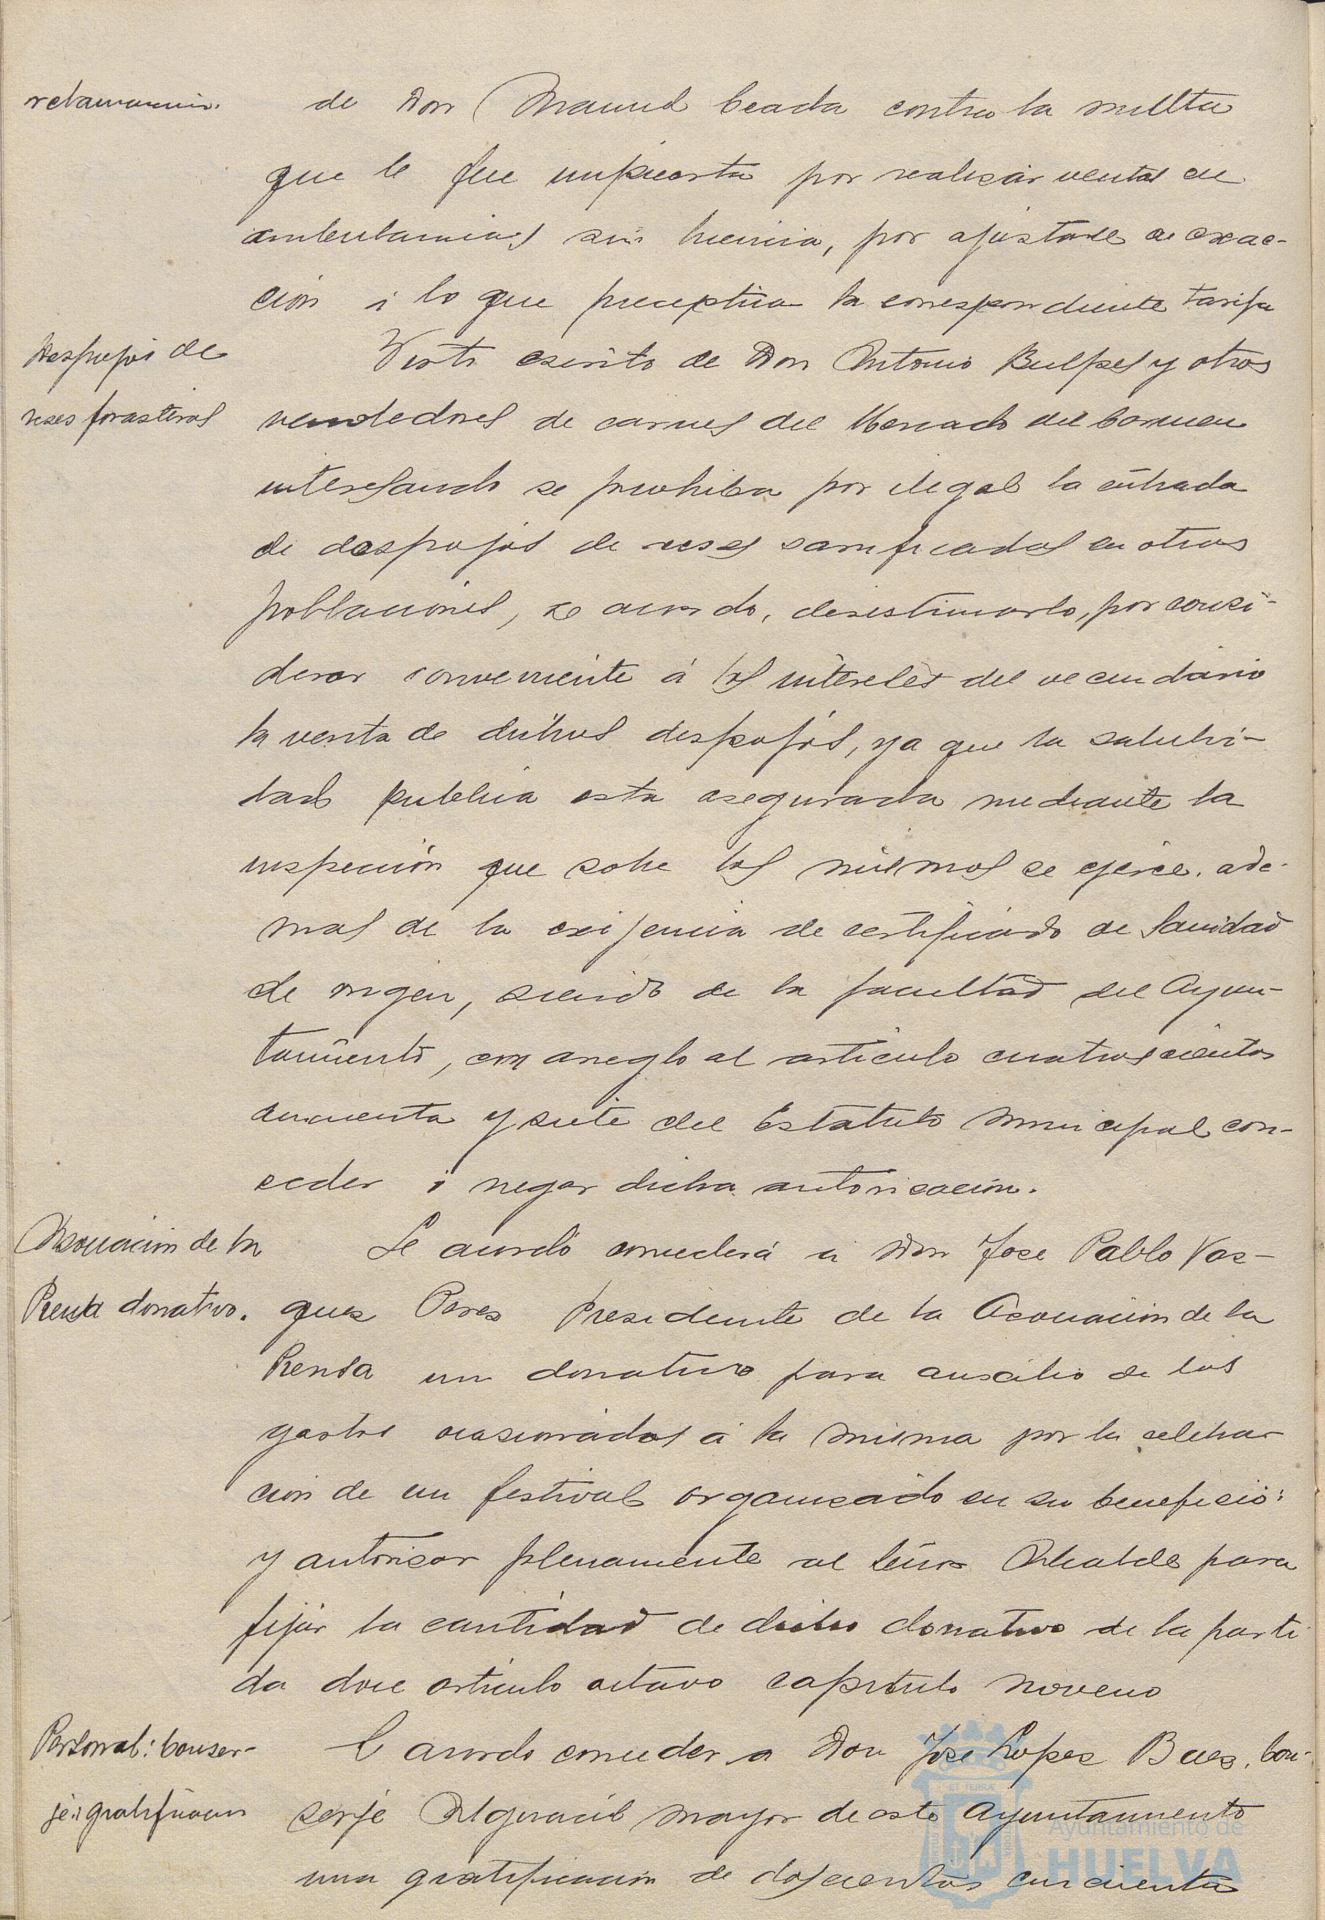 reclamacion.
de Don Manuel Ceada contra la multa
que le fue impuesta por realizar ventas en
ambulancias sin licencia, por ajustarse a exac-
ción á lo que preceptua la correspondiente tarifa
Despojos de
reses forasteras
Visto escrito de Don Antonio Bulpes y otros
vendedores de carnes del Mercado del Carmen
interesando se prohiba por ilegal la entrada
de despojos de reses sacrificadas en otras
poblaciones, se acordo, desestimarlo, por consi-
derar conveniente á los intereses del vecindario
la venta de dichos despojos, ya que la salubri-
dad publica esta asegurada mediante la
inspección que sobre los mismos se ejerce, ade-
mas de la exijencia de certificado de Sanidad
de origen, siendo de la facultad del Ayun-
tamiento, con arreglo al articulo cuatrocientos
cincuenta y siete del Estatuto Municipal con-
ceder ó negar dicha autorización.
Asociación de la
Prensa donativo.
Se acordó concederá a Don Jose Pablo Vas-
ques Peres Presidente de la Asociación de la
Prensa un donativo para auxilio de los
gastos ocasionados á la misma por la celebra-
ción de un festival organizado en su beneficio:
y autorisar plenamente al Señor Alcalde para
fijar la cantidad de dicho donativo de la parti
da doce articulo octavo capitulo noveno
Personal: Conser-
je: gratificacion
acordo conceder a Don Jose Lopes Baes, Con-
serje Alguacil mayor de este Ayuntamiento
una gratificación de doscientas cincuenta
Ayuntamiento de
HUELVA